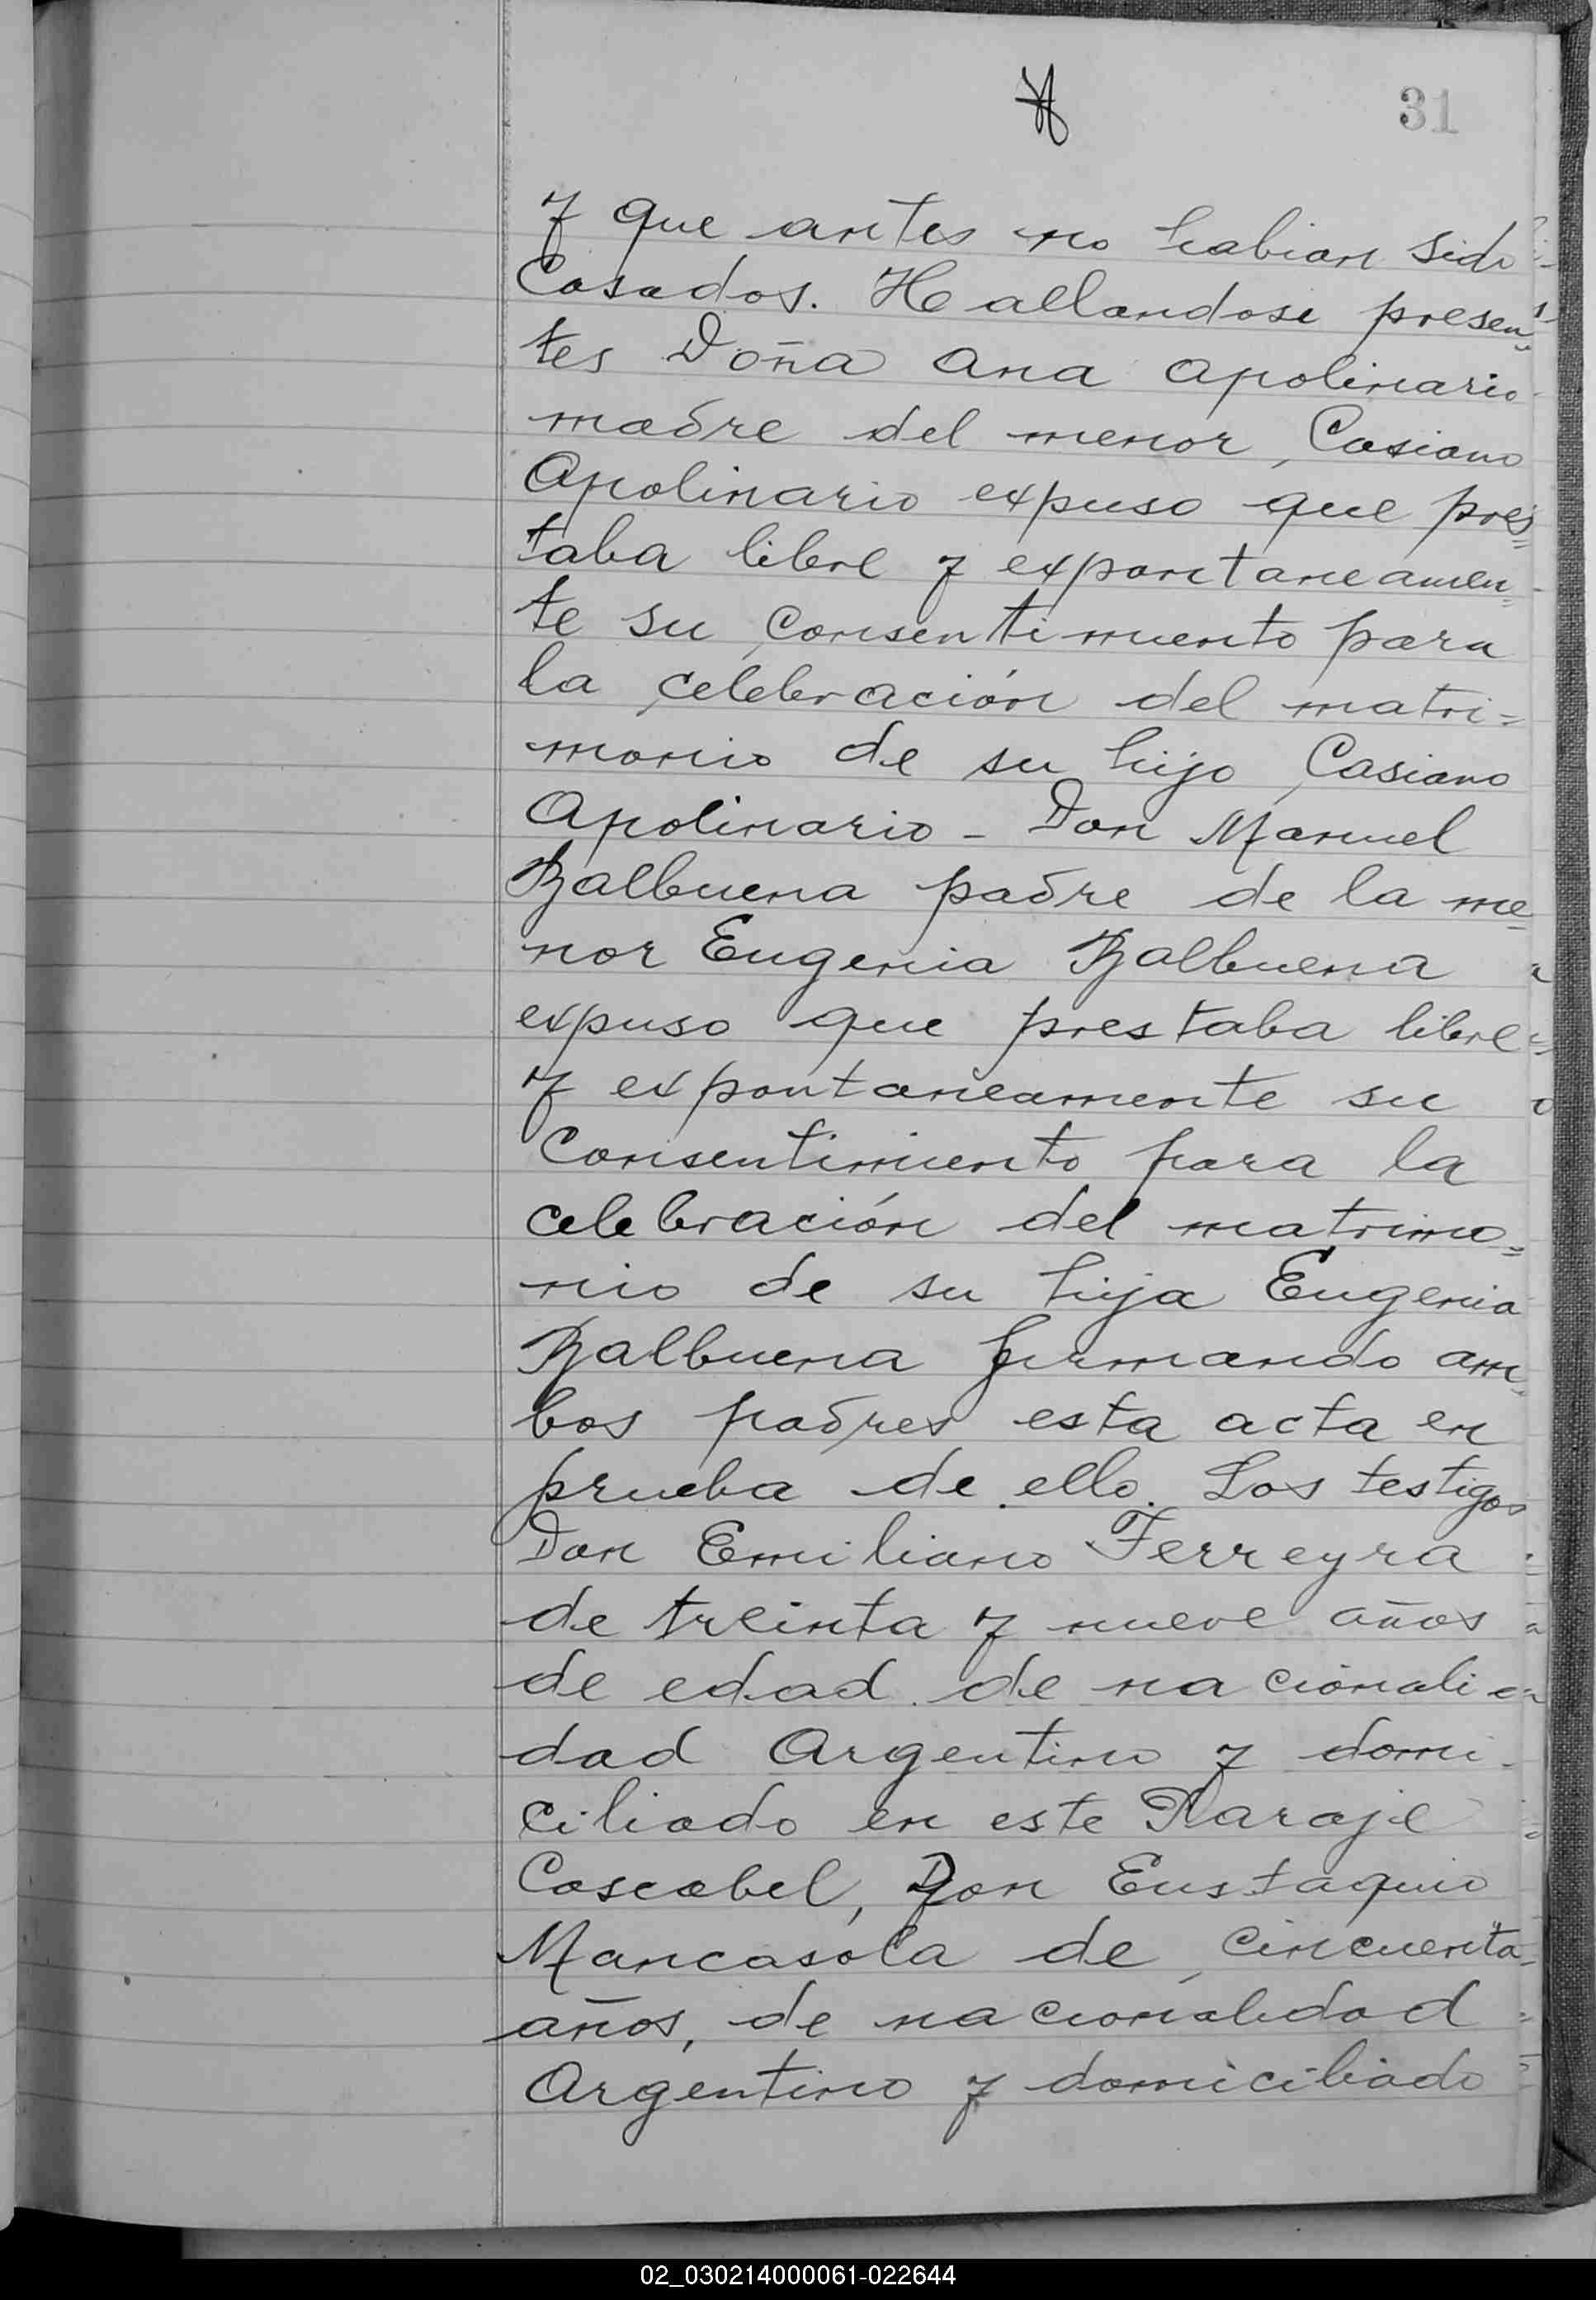 31
y que antes no habian sido
Casados. Hallandose presen-
tes Doña Ana Apolinario
madre del menor, Casiano
Apolinario expuso que pres=
taba libre y expontaneamen=
te su consentimiento para
la celebración del matri=
monio de su hijo Casiano
Apolinario - Don Manuel
Balbuena padre de la me=
nor Eugenia Balbuena
expuso que prestaba libre
y expontaneamente su
Consentimiento para la
celebración del matrimo=
nio de su hija Eugenia
Balbuena firmando am=
bos padres esta acta en
prueba de ello. Los testigos
Don Emiliano Ferreyra
de treinta y nueve años
de edad de nacionali
dad Argentino y domi
ciliado en este Paraje
Cascabel, Don Eustaquio
Mancasola de cincuenta
años, de nacionalidad
Argentino y domiciliado
02_030214000061-022644